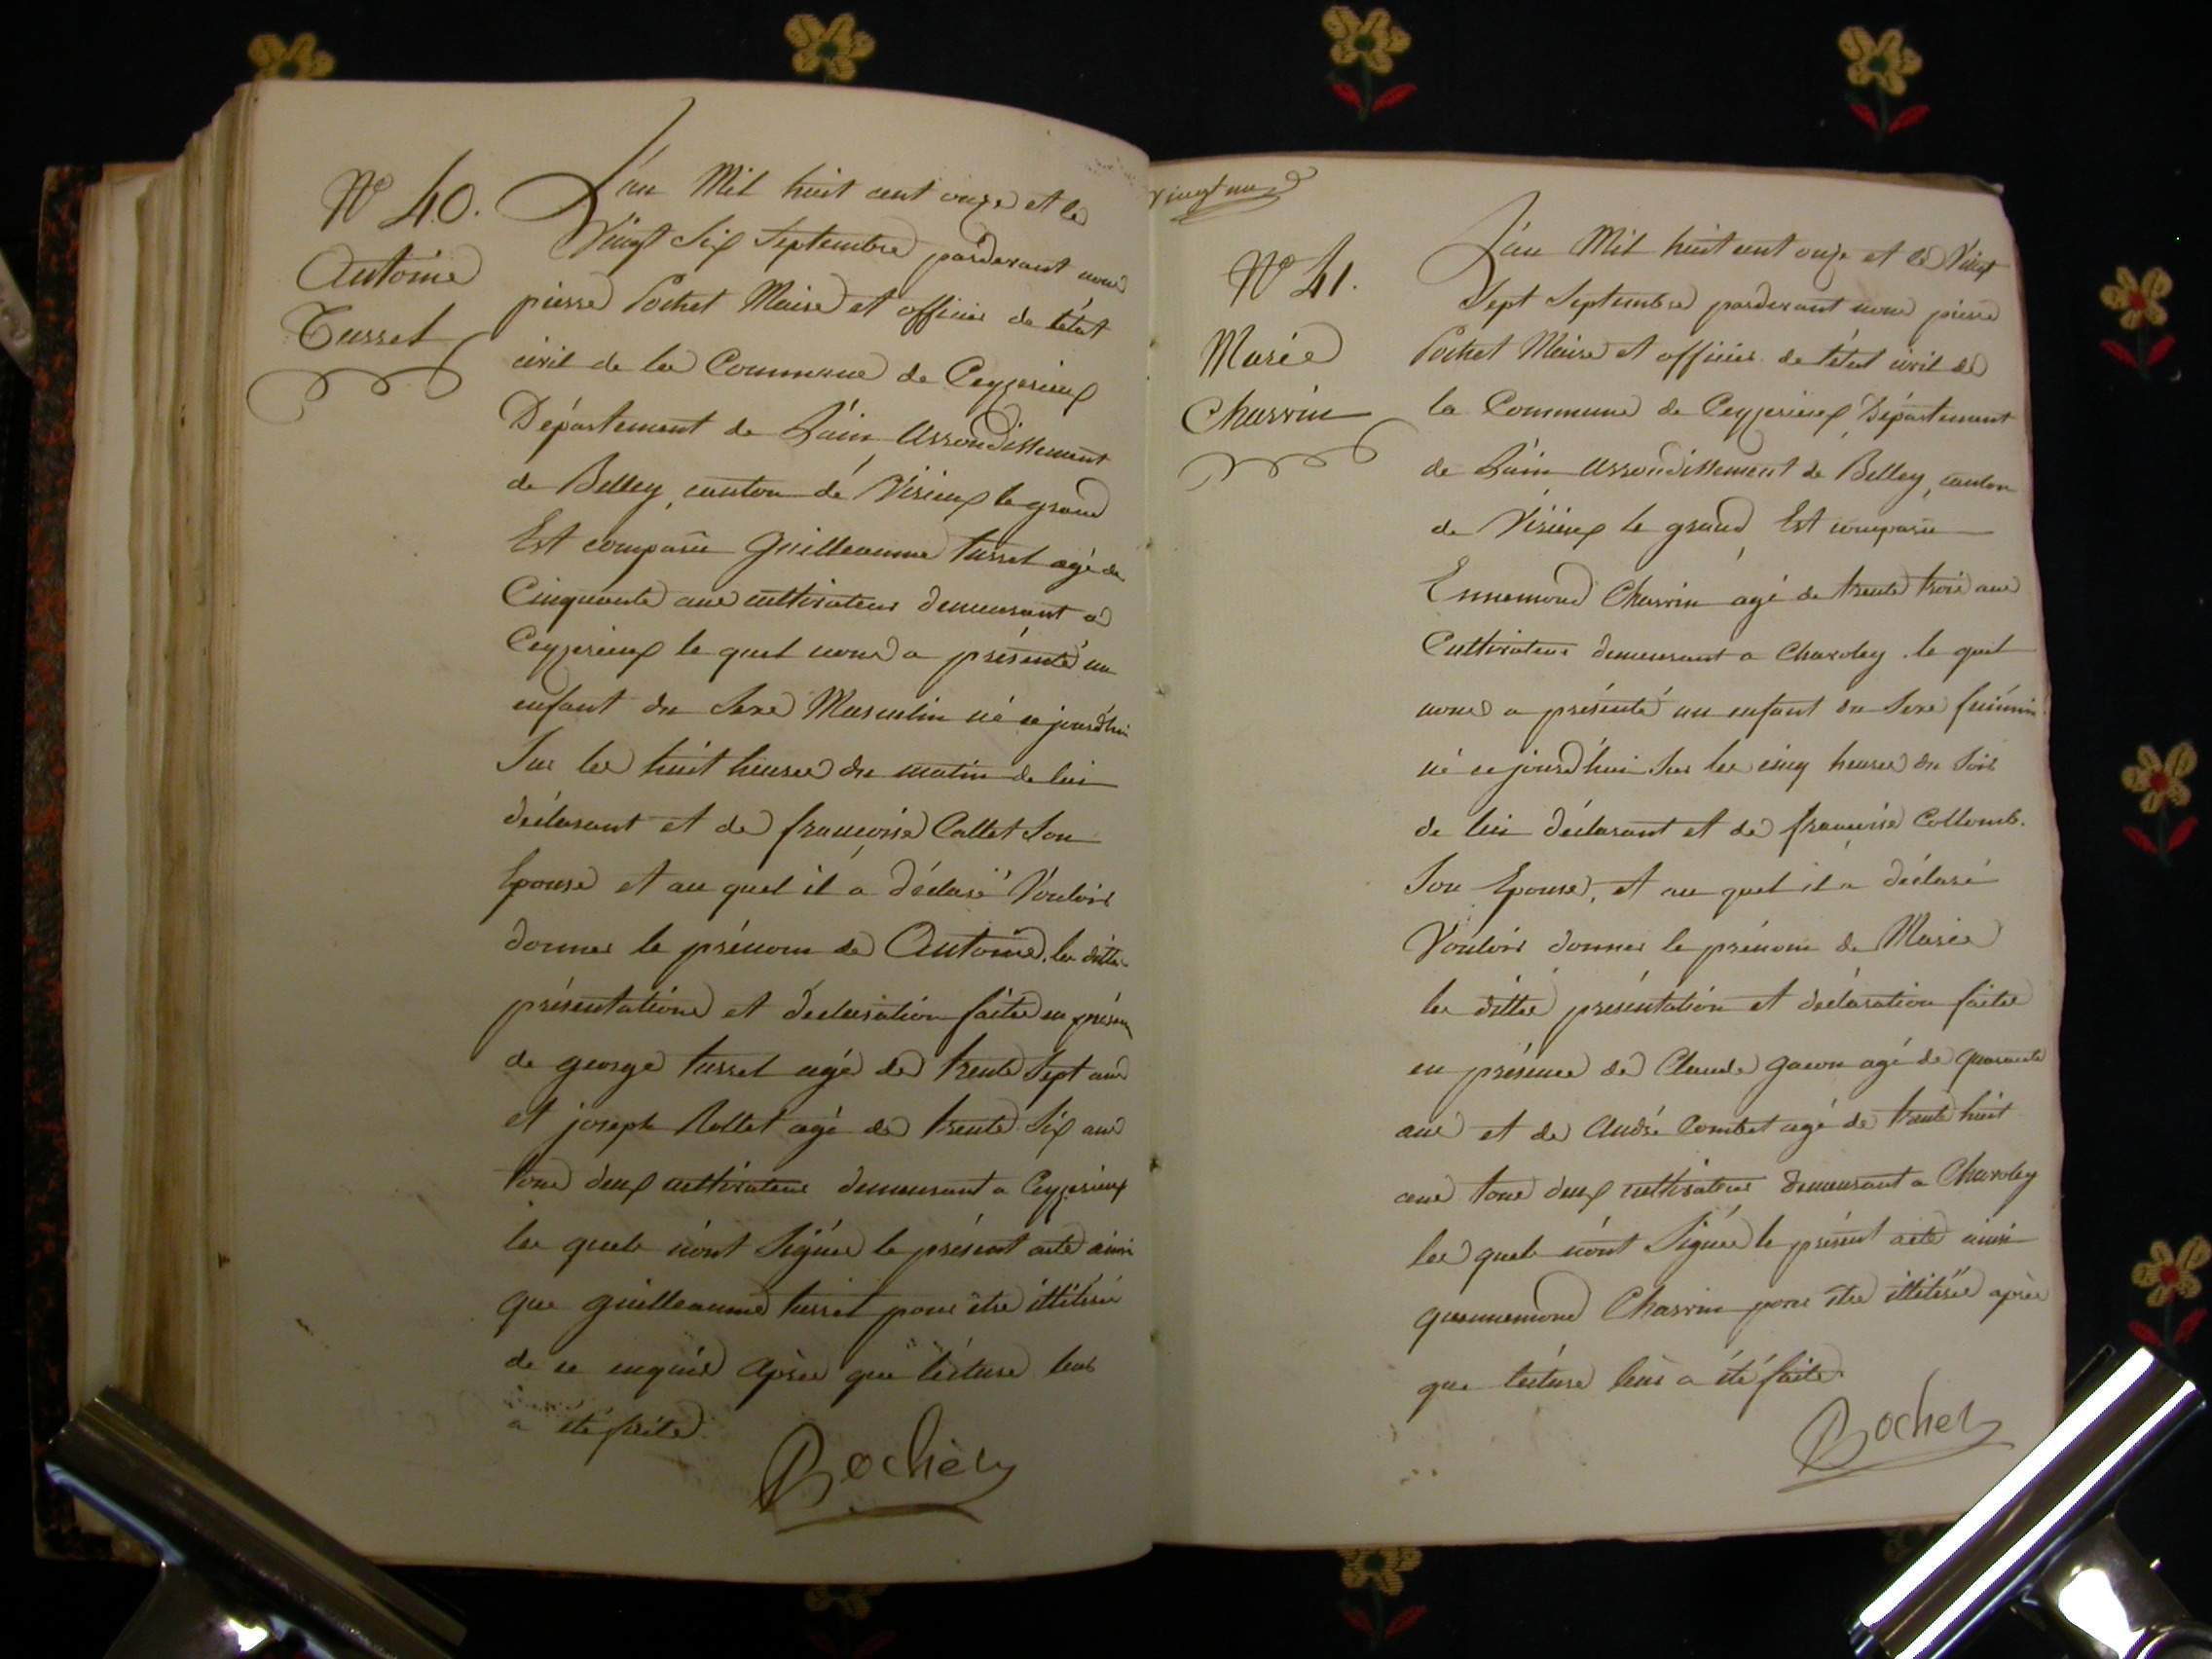 N° 40.
Antoine
Tusset
L'an Mil huit cent onze et le
Vingt Six Septembre pardevant nous
pierre Pochet Maire et officier de l'état
civil de la Commune de Ceyzerieux
Département de L'ain Arrondissement
de Belley, canton de Virieux le grand
Est comparu Guilleaume tusset agé de
Cinquante ans cultivateur demeurant a
Ceyzerieux le quel nous a présenté un
enfant du Sexe Masculin né ce jourd'hui
Sur les huit heures du matin de lui
déclarant et de françoise Callet Son
Epouse et au quel il a déclaré Vouloir
donner le prénom de Antoine. les dittes
présentations et declaration faites en présence
de george tusset agé de trente Sept ans
et joseph Rollet agé de trente Six ans
tous deux cultivateurs demeurant a Ceyzerieux
les quels n'ont Signés le présent acte ainsi
que guilleaume tusset pour être illitéré
de ce enquis après que lecture leur
a été faite.
Pochet
vingt un
N° 41.
Marie
Charvin
L'an Mil huit cent onze et le Vingt
Sept Septembre pardevant nous pierre
Pochet Maire et officier de l'état civil de
la Commune de Ceyzerieux Département
de L'ain Arrondissement de Belley, canton
de Virieux le grand Est comparu
Ennemond Charvin agé de trente trois ans
Cultivateur demeurant a Charoley le quel
nous a présenté un enfant du Sexe féminin
né ce jourd'hui Sur les cinq heures du Soir
de lui déclarant et de françoise Collomb.
Son Epouse, et au quel il a déclaré
Vouloir donner le prénom de Marie
les dittes présentation et declaration faites
en présence de Claude gacon agé de quarante
ans et de André Combet agé de trente huit
ans tous deux cultivateurs demeurant a Charoley
les quels n'ont Signés le présent acte ainsi
qu'ennemond Charvin pour être illitérés après
que lecture leur a été faite.
Pochet